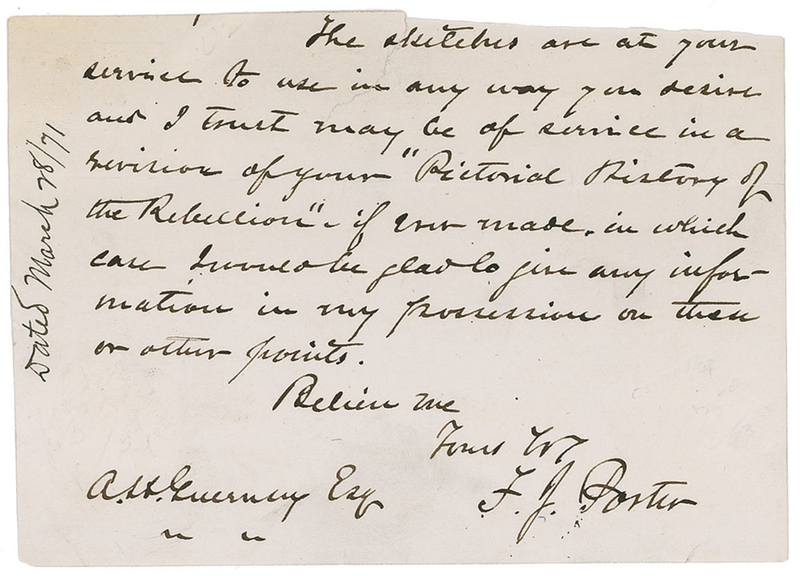 The sketches are at your
service to use in any way you desire
and I trust may be of service in a
revision of your "Pictorial History of
the Rebellion" - if ever made, in which
case I would be glad to give any infor-
mation in my possession on these
or other points.
Believe me
Yours
F. J. Porter
A. H. Guernsey Esq
" "
Dated March 28/71